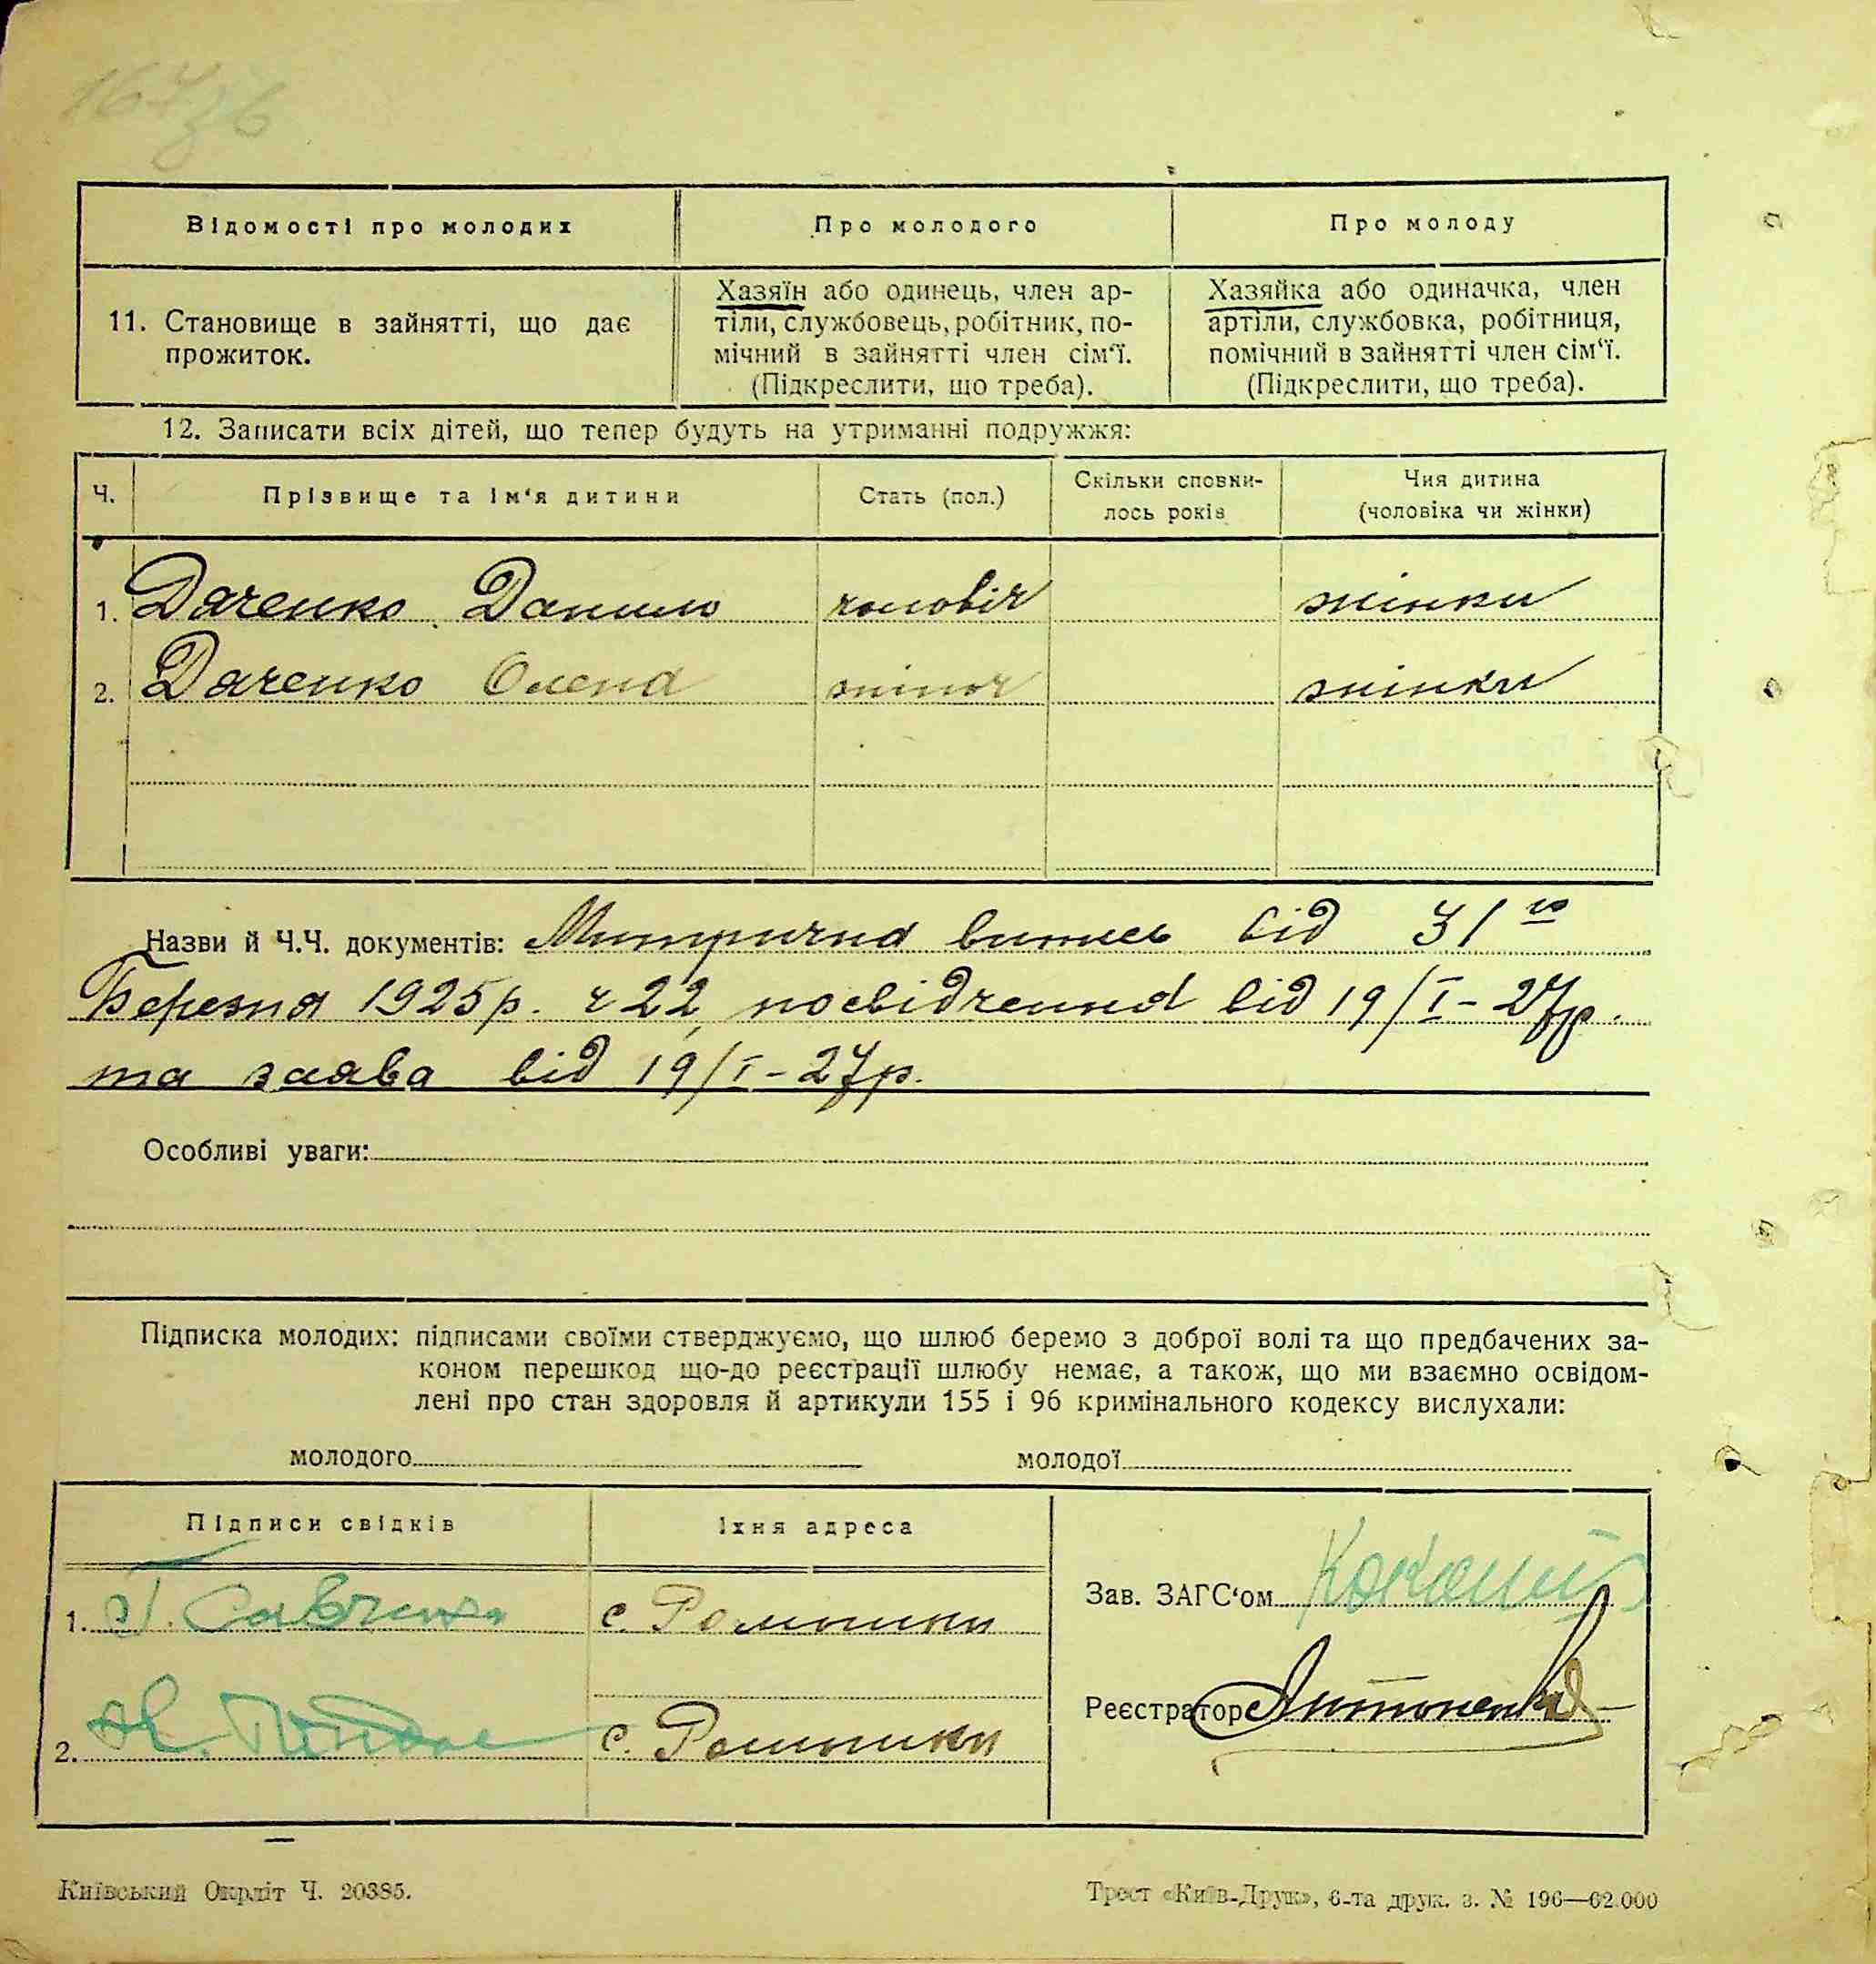 167зв
Відомості про молодих
Про молодого
Про молоду
11. Становище в зайнятті, що дає
прожиток.
Хазяїн або одинець, член ар-
тіли, службовець, робітник, по-
мічний в зайнятті член сім‘ї.
(Підкреслити, що треба).
Хазяйка або одиначка, член
артіли, службовка, робітниця,
помічний в зайнятті член сім‘ї.
(Підкреслити, що треба).
12. Записати всіх дітей, що тепер будуть на утриманні подружжя:
Ч. Прізвище та ім‘я дитини Стать (пол.) Скільки сповни-
лось років Чия дитина
(чоловіка чи жінки)
1. Дяченко Данило чоловіч жінки
2. Дяченко Олена жіноч жінки
Назви й Ч.Ч. документів: Митрична випись від 31го
Березня 1925р. ч 22, посвідчення від 19/I-27р.
та заява від 19/I-27р.
Особливі уваги:
Підписка молодих: підписами своїми стверджуємо, що шлюб беремо з доброї волі та що предбачених за-
коном перешкод що-до реєстрації шлюбу немає, а також, що ми взаємно освідом-
лені про стан здоровля й артикули 155 і 96 кримінального кодексу вислухали:
молодого молодої
Підписи свідків
Їхня адреса
1. Савченко с. Ромашки
2. с. Ромашки
Зав. ЗАГС‘ом
Реєстратор Антоненко
Київський Окрліт Ч. 20385.
Трест «Київ-Друк», 6-та друк. з. № 196—62.000